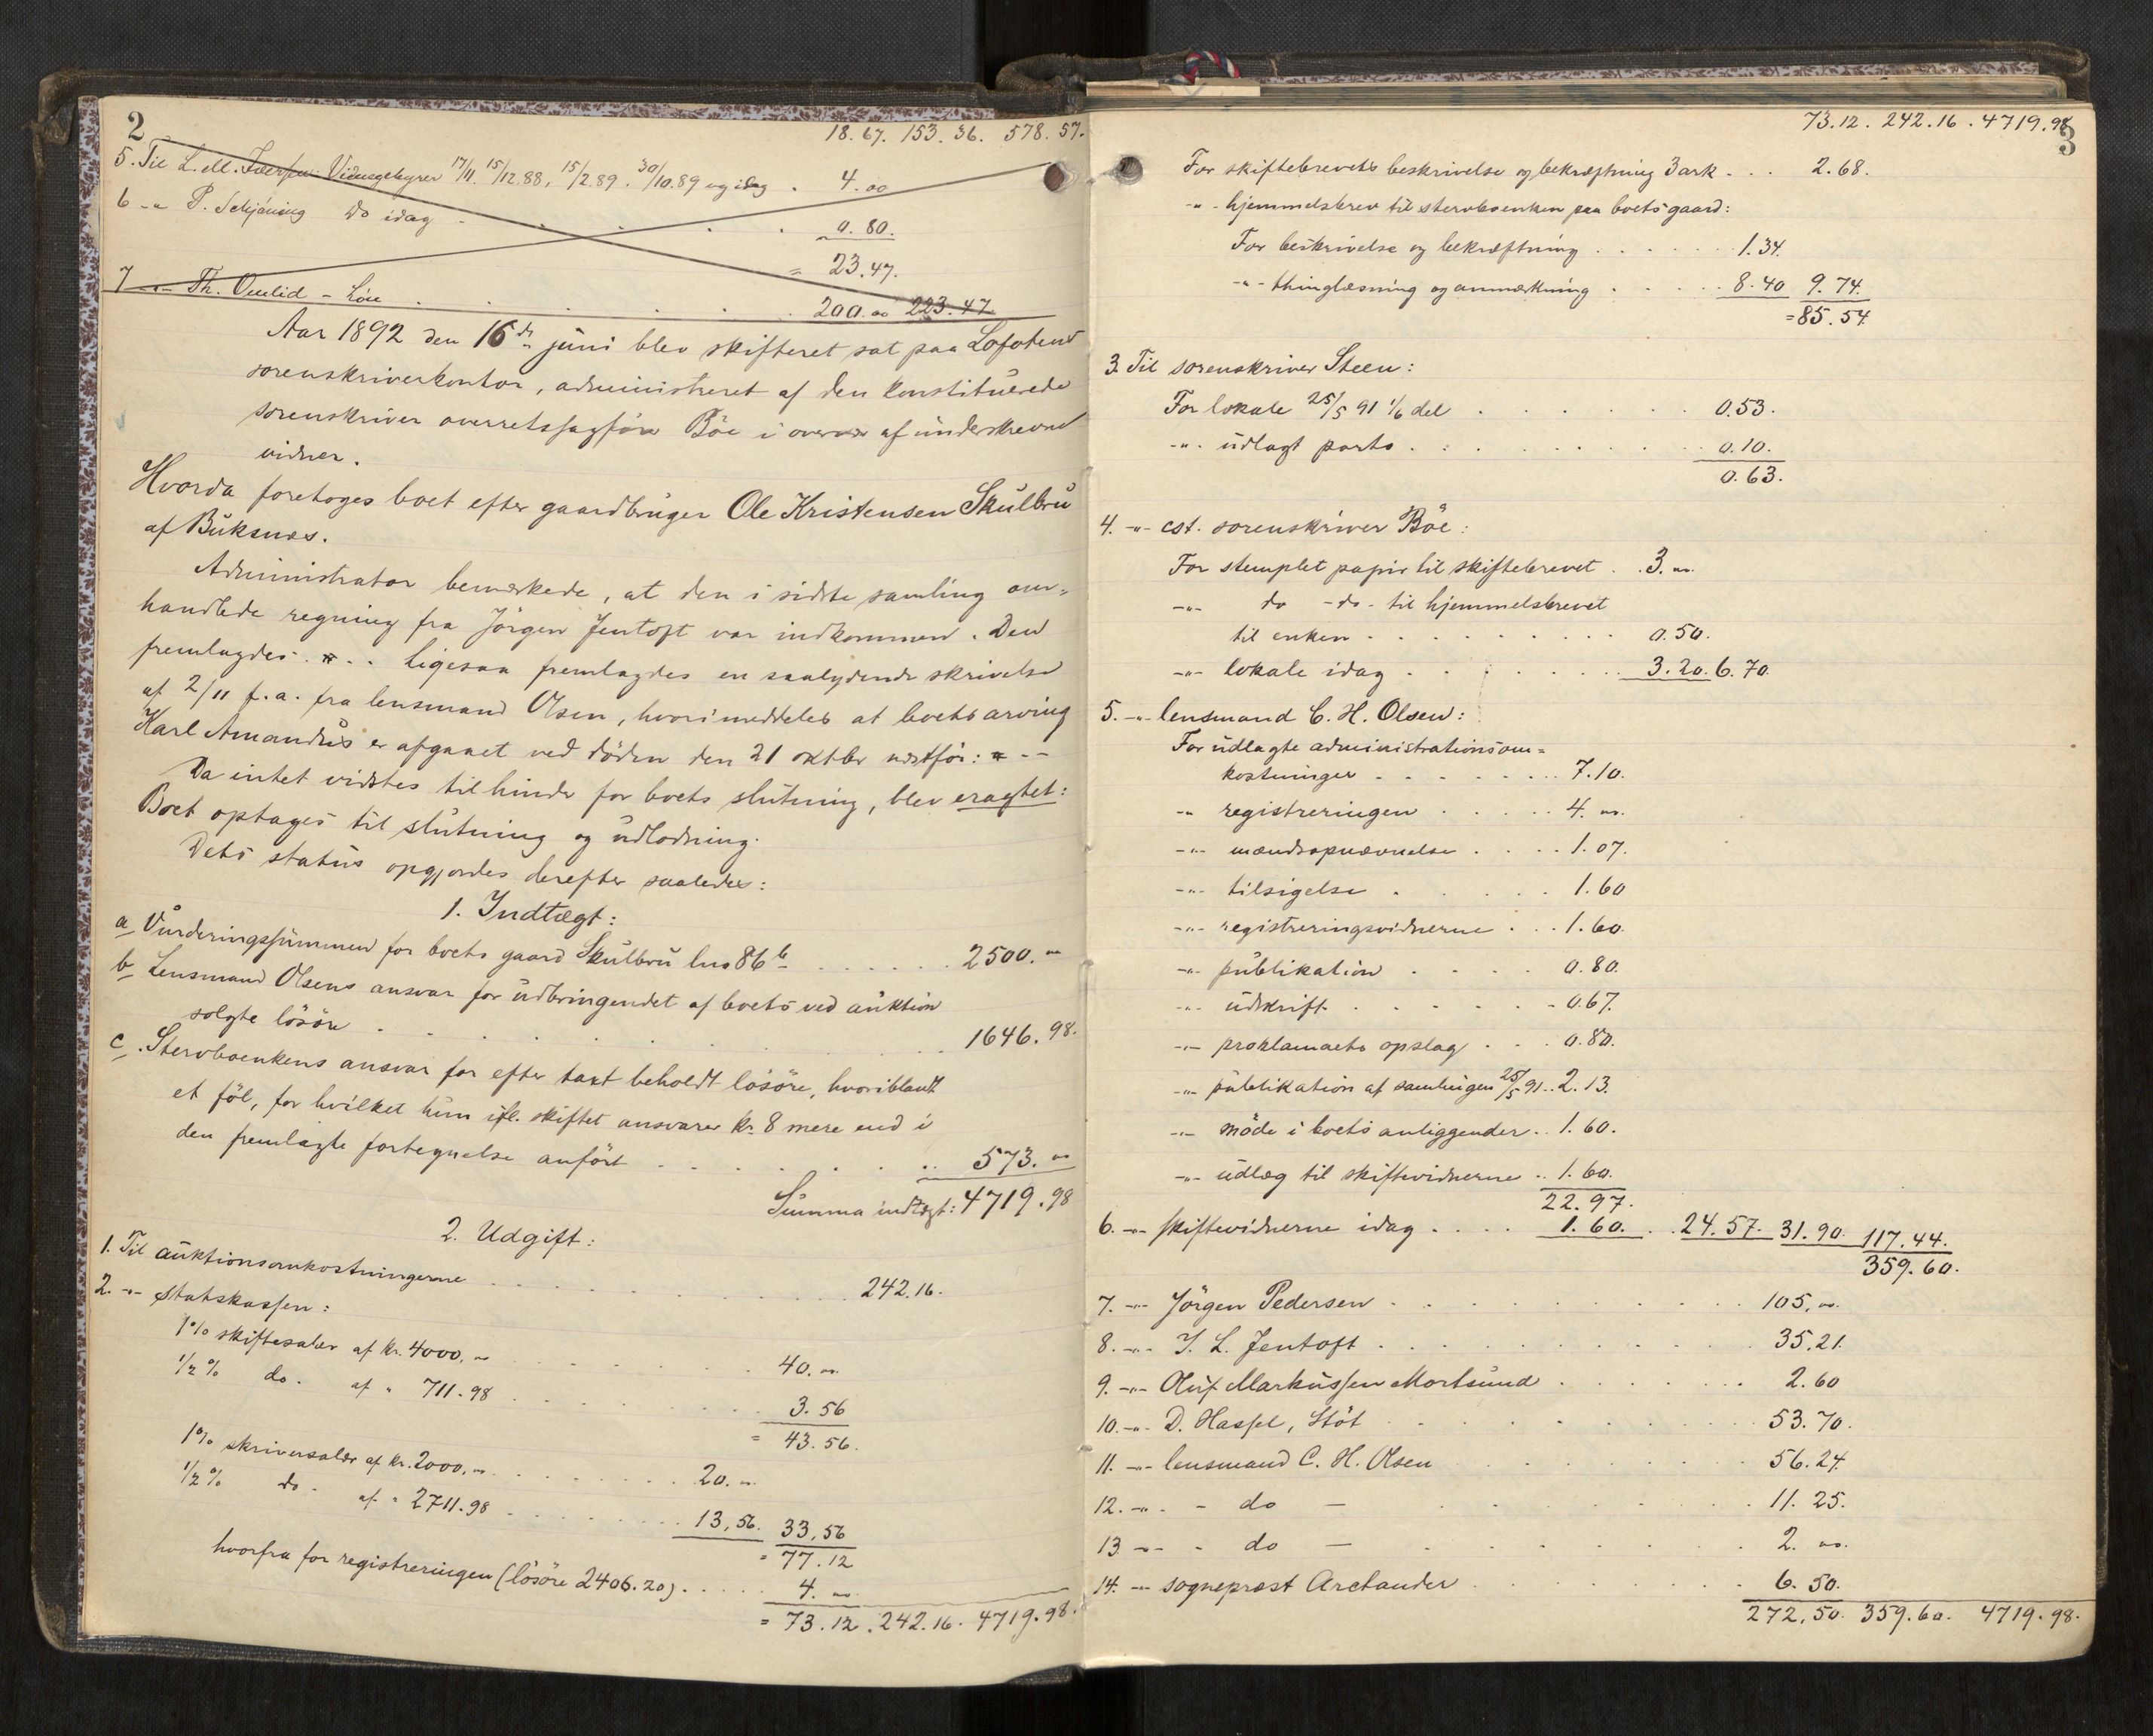 2
18.67. 153.36. 578.57.
5. Til L. M. Iversen: Vidnegebyrer 17/11. 15/12.88, 15/2.89. 30/10.89 og idag . 4.00
6 -„ P. Schjöning do idag . . . . . 0.80.
= 23.47.
7 -„- Th. Omlid - Lön . . . . . 200.00 223.47
Aar 1892 den 16de juni blev skifteret sat paa Lofotens
sorenskriverkontor, administreret af den konstituerede
sorenskriver overretssagförer Böe i overvær af underskrevne
vidner.
Hvorda foretoges boet efter gaardbruger Ole Kristensen Skulbru
af Buksnes.
Administrator bemærkede, at den i sidste samling om=
handlede regning fra Jörgen Jentoft var indkommen. Den
fremlagdes. * .. Ligesaa fremlagdes en saalydende skrivelse
af 2/11 f.a. fra lensmand Olsen, hvori meddeles at boets arving
Karl Amandus er afgaaet ved döden den 21 oktbr nestför: * --
Da intet vidstes til hinder for boets slutning, blev eragtet:
Boet optages til slutning og udlodning.
Dets status opgjordes derefter saaledes:
1. Indtægt:
a Vurderingssummen for boets gaard Skulbru lno 86 b . . . . . . 2500.„
b Lensmand Olsens ansvar for udbringendet af boets ved auktion
solgte lösöre . . . . . . 1646.98.
c. Stervboenkens ansvar for efter taxt beholdt lösöre, hvoriblandt
et föl, for hvilket hun ifl. skiftet ansvarer kr. 8 mere end i
den fremlagte fortegnelse anfört . . . . . . . 573.„
Summa indtægt: 4719.98
2. Udgift:
1. Til auktionsomkostningerne . . . . . . 242.16.
2. -„- Statskassen:
1% skiftesalær af kr. 4000.„ . . . . . . 40.„
1/2% do. af „ 711.98 . . . . . . 3.56
= 43.56.
1% skriversalær af kr. 2000.„ . . . . . . 20.„
1/2% do. af „ 2711.98 . . . . . . 13,56. 33,56
= 77.12
hvorfra for registreringen (lösöre 2406.20) . . . . . 4.„
= 73.12. 242.16. 4719.98.
73.12. 242.16. 4719.98
3
For skiftebrevets beskrivelse og bekræftning 3 ark . . . 2.68.
-„- hjemmelsbrev til stervboenken paa boets gaard:
For beskrivelse og bekræftning . . . . . . 1.34.
-„- thinglæsning og anmærkning . . . . . 8.40 9.74.
= 85.54
3. Til sorenskriver Steen:
For lokale 25/5 91 1/6 del . . . . . . . 0.53.
-„- udlagt porto . . . . . . . . 0.10.
0.63.
4. -„- cst. sorenskriver Böe:
For stemplet papir til skiftebrevet . . 3.„
-„- do -do- til hjemmelsbrevet
til enken . . . . . . . . . 0.50.
-„- lokale idag . . . . . . . 3.20. 6.70.
5. -„- lensmand C. H. Olsen:
For udlagte administrationsom=
kostninger . . . . . . . . 7.10.
-„ registreringen . . . . . 4.„
-„- mændsopnævnelse . . . . 1.07.
-„- tilsigelse . . . . . 1.60
-„- registreringsvidnerne . . . 1.60.
-„- publikation . . . . 0.80.
-„- udskrift . . . . . . 0.67.
-„- proklamaets opslag . . . 0.80.
-„- publikation af samlingen 25/5 91 . . 2.13.
-„- möde i boets anliggender . . 1.60.
-„- udlæg til skiftevidnerne . . 1.60.
22.97.
6. -„- skiftevidnerne idag . . . . 1.60. . . 24.57. 31.90. 117.44.
359.60.
7. -„- Jörgen Pedersen . . . . . . . . 105.„
8. -„- J. L. Jentoft . . . . . . . . 35.21.
9. -„- Oluf Markussen Mortsund . . . . . . 2.60
10. -„- D. Hassel, Stöt . . . . . . . 53.70.
11. -„- lensmand C. H. Olsen . . . . . . 56.24.
12. -„- - do — . . . . . . 11.25.
13 -„- - do — . . . . . . 2.„
14. -„- sogneprest Arctander . . . . . . 6.50.
272,50. 359.60. 4719.98.